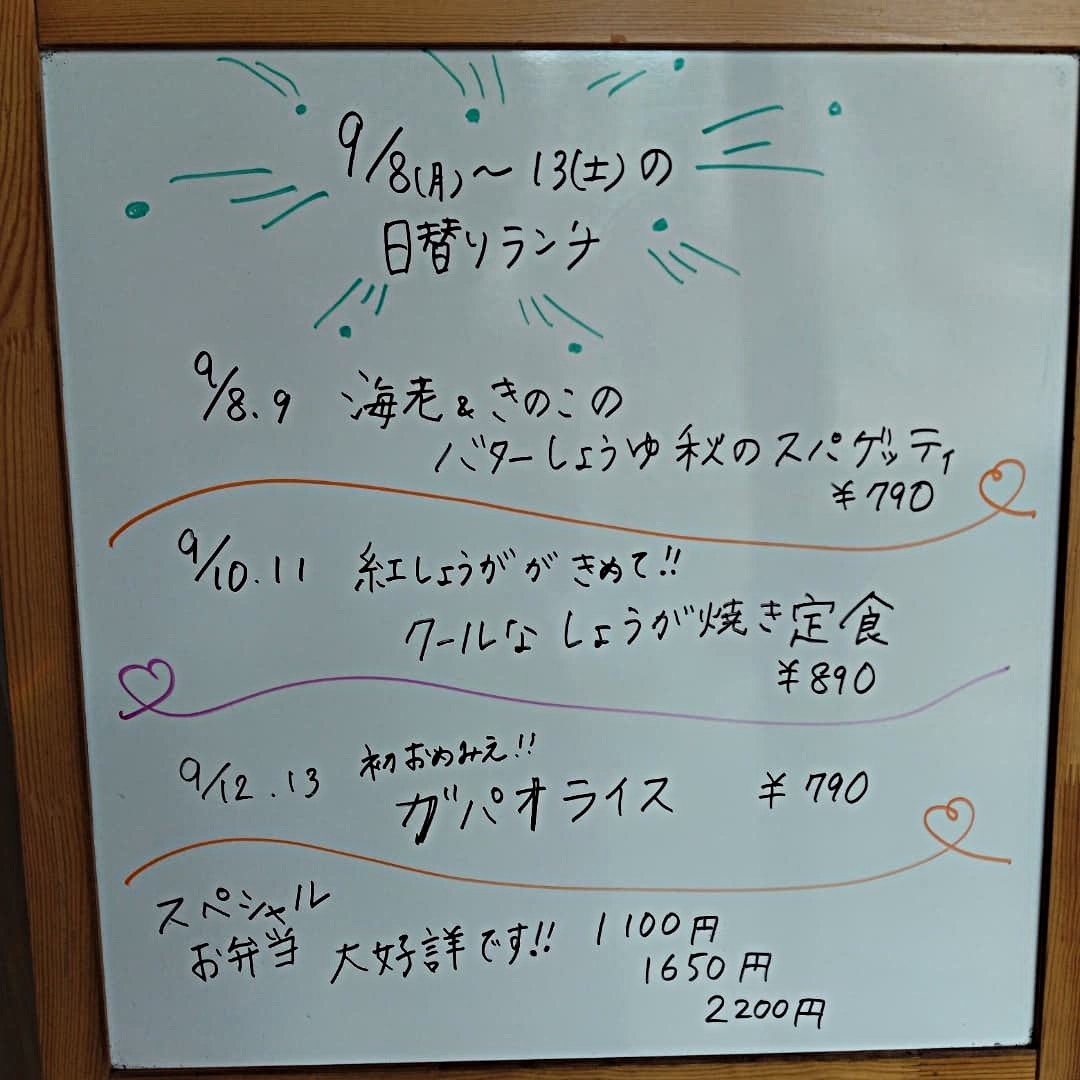 9/8(月)〜13(土)の
日替りランチ
9/8.9 海老&きのこの
バターしょうゆ秋のスパゲッティ
¥790
9/10.11 紅しょうががきめて!!
クールなしょうが焼き定食
¥890
9/12.13 初おめみえ!!
ガパオライス ¥790
スペシャル
お弁当 大好評です!! 1100円
1650円
2200円